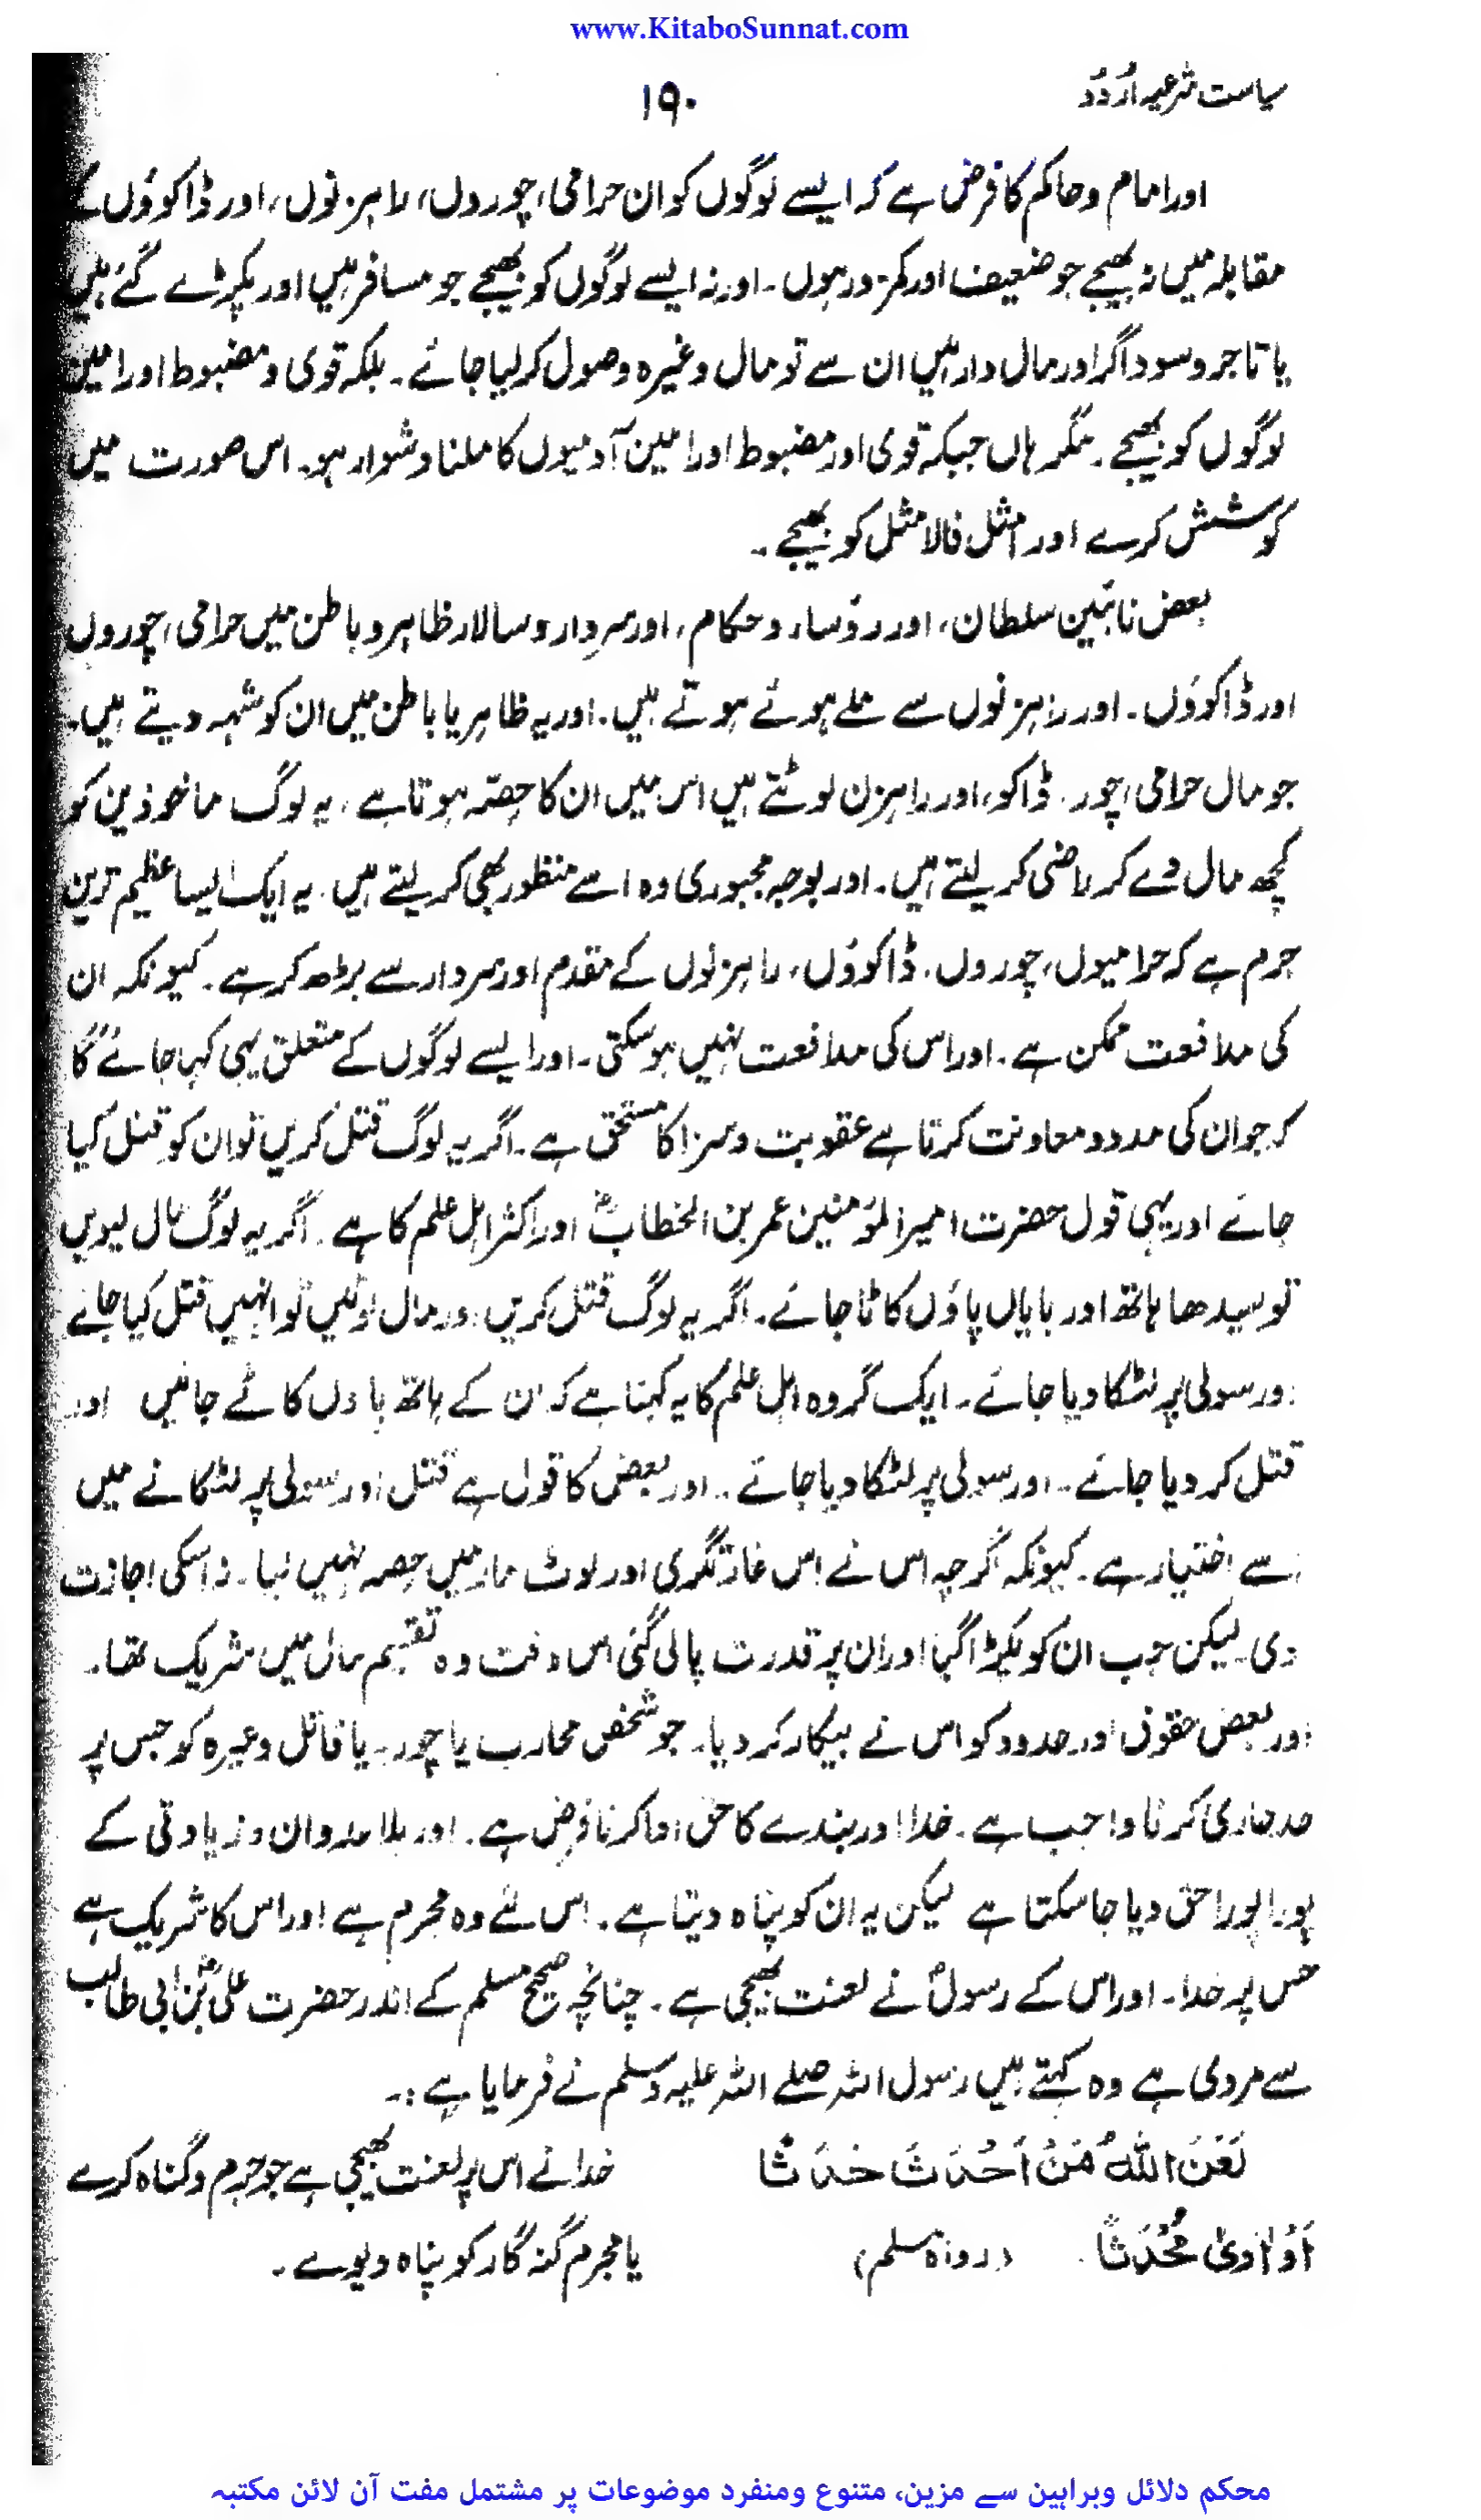 www.KitaboSunnat.com
سیاست شرعیہ اُردُو
۱۹۰
اور امام و حاکم کا فرض ہے کہ ایسے لوگوں کو ان حرامی، چوروں، راہزنوں، اور ڈاکوؤں کے
مقابلہ میں نہ بھیجے جو ضعیف اور کمزور ہوں۔ اور نہ ایسے لوگوں کو بھیجے جو مسافر ہیں اور پکڑے گئے ہیں
یا تاجر و سوداگر اور مال دار ہیں ان سے تو مال وغیرہ وصول کر لیا جائے۔ بلکہ قوی و مضبوط اور امین
لوگوں کو بھیجے۔ مگر ہاں جبکہ قوی اور مضبوط اور امین آدمیوں کا ملنا دشوار ہو۔ اس صورت میں
کوشش کرے اور امثل فالامثل کو بھیجے۔
بعض نائبین سلطان، اور رؤسار و حکام، اور سردار و سالار ظاہر و باطن میں حرامی، چوروں
اور ڈاکوؤں۔ اور راہزنوں سے ملے ہوئے ہوتے ہیں۔ اور یہ ظاہر یا باطن میں ان کو شہہ دیتے ہیں۔
جو مال حرامی، چور۔ ڈاکو، اور راہزن لوٹتے ہیں اس میں ان کا حصّہ ہوتا ہے، یہ لوگ ماخوذین کو
کچھ مال دے کر راضی کر لیتے ہیں۔ اور بوجہ مجبوری وہ اسے منظور بھی کر لیتے ہیں۔ یہ ایک ایسا عظیم ترین
جرم ہے کہ حرامیوں، چوروں۔ ڈاکوؤں، راہزنوں کے مقدم اور سردار سے بڑھ کر ہے۔ کیونکہ ان
کی مدافعت ممکن ہے۔ اور اس کی مدافعت نہیں ہو سکتی۔ اور ایسے لوگوں کے متعلق یہی کہا جائے گا
کہ جو ان کی مدد و معاونت کرتا ہے عقوبت و سزا کا مستحق ہے۔ اگر یہ لوگ قتل کریں تو ان کو قتل کیا
جائے اور یہی قول حضرت امیرالمؤمنین عمر بن الخطابؓ اور اکثر اہل علم کا ہے۔ اگر یہ لوگ مال لیویں
تو سیدھا ہاتھ اور بایاں پاؤں کاٹا جائے۔ اگر یہ لوگ قتل کریں اور مال لوٹیں تو انہیں قتل کیا جائے
اور سولی پر لٹکا دیا جائے۔ ایک گروہ اہل علم کا یہ کہنا ہے کہ ان کے ہاتھ پاؤں کاٹے جائیں اور
قتل کر دیا جائے۔ اور سولی پر لٹکا دیا جائے۔ اور بعض کا قول ہے قتل اور سولی پر لٹکانے میں
اسے اختیار ہے۔ کیونکہ اگرچہ اس نے اس غارتگری اور لوٹ مار میں حصہ نہیں لیا۔ نہ اسکی اجازت
دی۔ لیکن جب ان کو پکڑا گیا اور ان پر قدرت پالی گئی اس وقت وہ تقسیم مال میں شریک تھا۔
اور بعض حقوق اور حدود کو اس نے بیکار کر دیا۔ جو شخص محارب یا چور۔ یا قاتل وغیرہ کو جس پر
حد جاری کرنا واجب ہے۔ خدا اور بندے کا حق ادا کرنا فرض ہے۔ اور بلا عدوان و زیادتی کے
پورا پورا حق دیا جا سکتا ہے لیکن یہ ان کو پناہ دیتا ہے۔ اس لئے وہ مجرم ہے اور اس کا شریک ہے
جس پر خدا۔ اور اس کے رسولؐ نے لعنت بھیجی ہے۔ چنانچہ صحیح مسلم کے اندر حضرت علیؓ بن ابی طالب
سے مروی ہے وہ کہتے ہیں رسول اللہ صلے اللہ علیہ وسلم نے فرمایا ہے:۔
لَعَنَ اللهُ مَنْ اَحْدَثَ حَدَثًا
خدا نے اس پر لعنت بھیجی ہے جو جرم و گناہ کرے
اَوْ اٰوٰى مُحْدَثًا۔ (رواہ مسلم)
یا مجرم گنہگار کو پناہ دیوے۔
محکم دلائل وبراہین سے مزین، متنوع ومنفرد موضوعات پر مشتمل مفت آن لائن مکتبہ